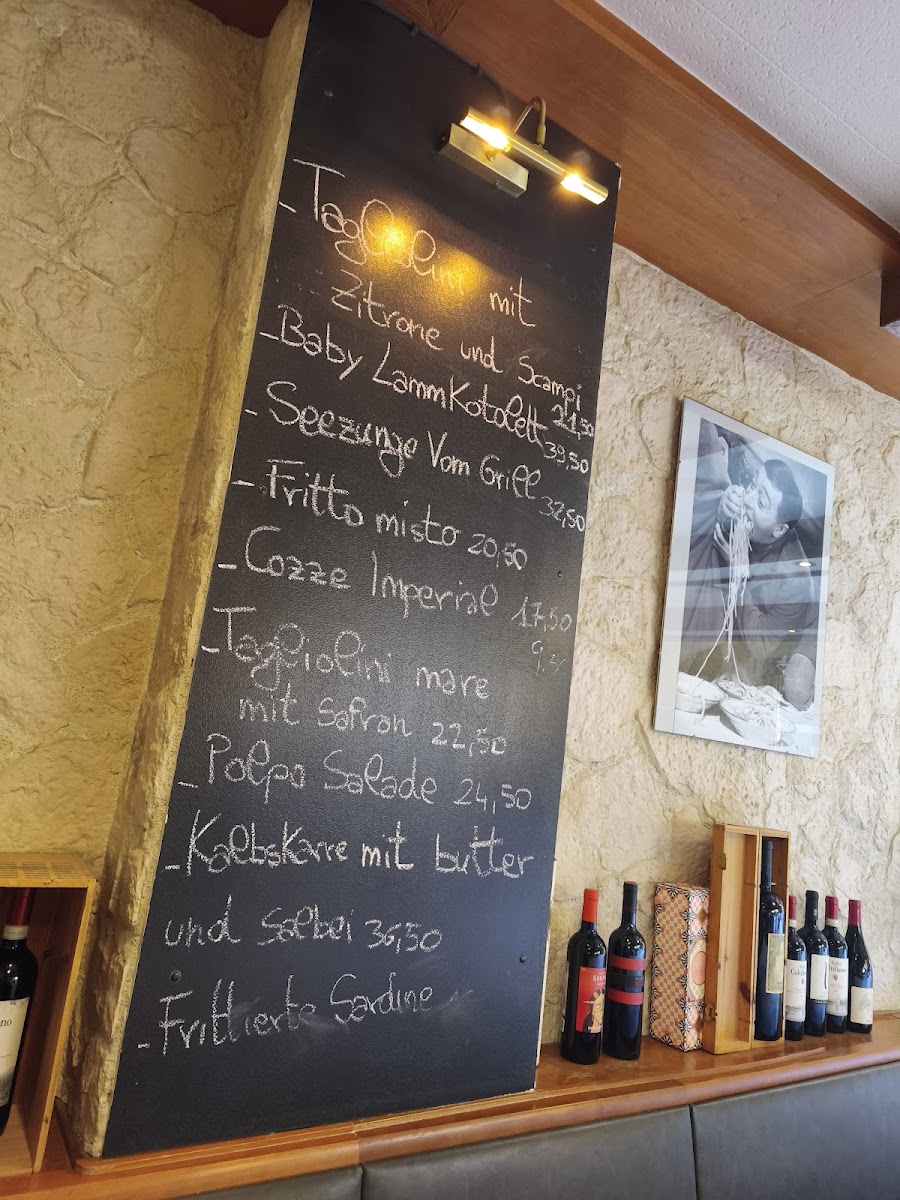 - Tagliolini mit
Zitrone und Scampi
21,50
- Baby LammKotolett
39,50
- Seezunge Vom Grill
32,50
- Fritto misto 20,50
- Cozze Imperial 17,50
- Tagliolini mare
mit Safran 22,50
- Polpo Salade 24,50
- Kalbskarre mit butter
und Salbei 36,50
- Frittierte Sardine